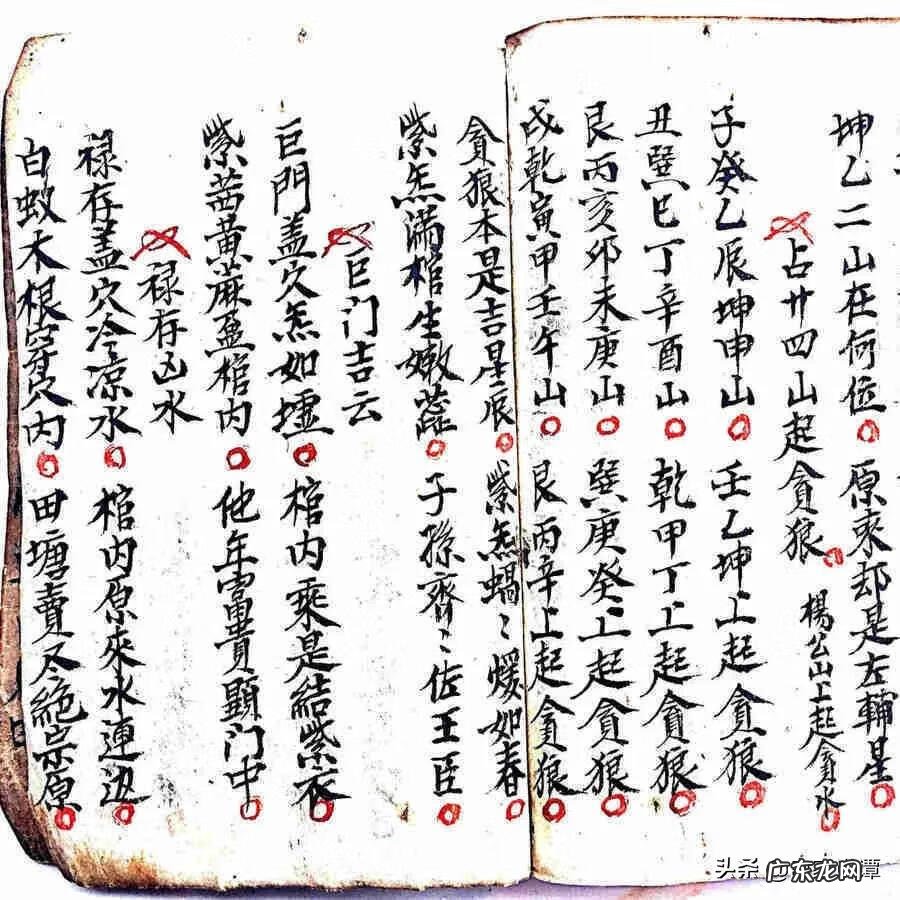 坤乙二山在何位 原來却是左輔星
占廿四山起貪狼 楊公山上起貪水
子癸乙辰坤申山 壬乙坤上起貪狼
丑巽巳丁辛酉山 乾甲丁上起貪狼
艮丙亥卯未庚山 巽庚癸上起貪狼
戌乾寅甲壬午山 艮丙辛上起貪狼
貪狼本是吉星辰 紫炁蝎〻煖如春
紫炁滿棺生嫩蕋 子孫齊〻佐王臣
巨门吉云
巨門盖穴炁如墟 棺内乘是結紫衣
紫茜黄蔴盈棺内 他年富貴顕门中
禄存凶水
禄存盖穴冷凉水 棺内原來水連边
白蚁木根穿穴内 田塘賣尽絶宗原
头条 @广东龙网谭